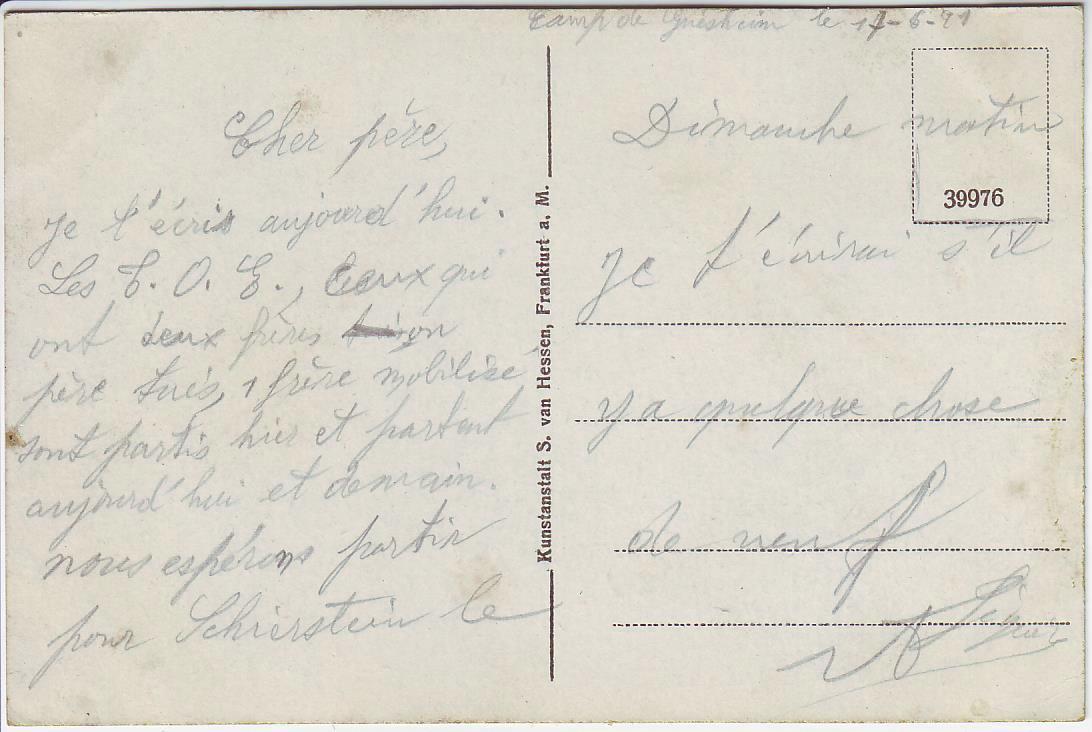 Camp de Griesheim le 17-6-21
Cher père,
Je t'écris aujourd'hui.
Les T. O. E., Ceux qui
ont deux frères on
père tués, 1 frère mobilisé
sont partis hier et partent
aujourd'hui et demain.
nous espérons partir
pour Schierstein le
Kunstanstalt S. van Hessen, Frankfurt a. M.
39976
Dimanche matin
Je t'écrirai s'il
y a quelque chose
de neuf